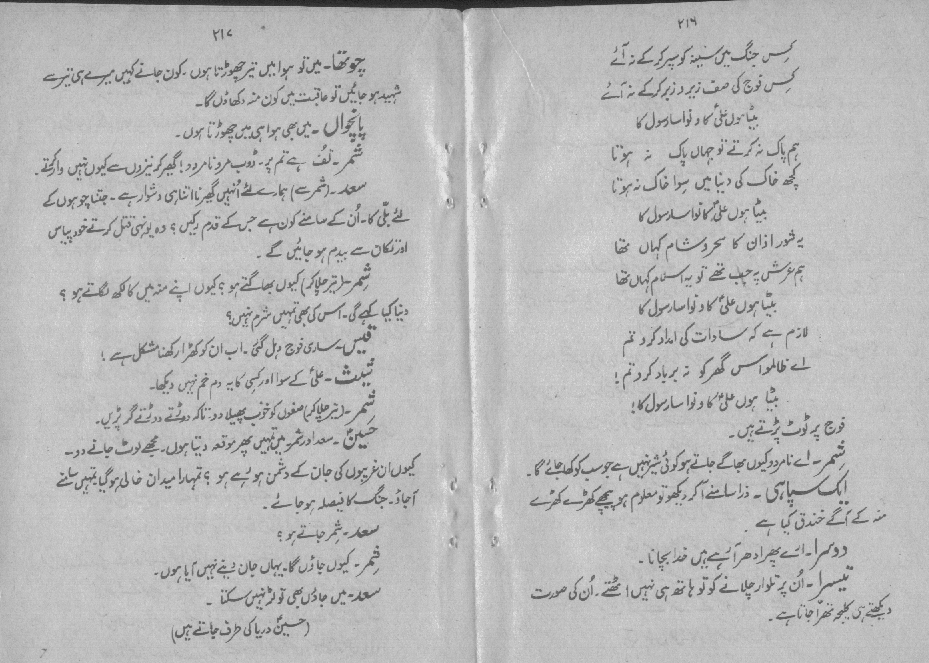 ۲۱۶
کس جنگ میں سینہ کو سپر کر کے نہ آئے
کس فوج کی صف زیر و زبر کر کے نہ آئے
بیٹا ہوں علیؑ کا و نواسا رسول کا
ہم پاک نہ کرتے تو جہاں پاک نہ ہوتا
کچھ خاک کی دنیا میں سوا خاک نہ ہوتا
بیٹا ہوں علیؑ کا نواسا رسول کا
یہ شور اذان کا سحر و شام کہاں تھا
ہم عرش پہ جب تھے تو یہ اسلام کہاں تھا
بیٹا ہوں علیؑ کا و نواسا رسول کا
لازم ہے کہ سادات کی امداد کرو تم
اے ظالمو اس گھر کو نہ برباد کرو تم!
بیٹا ہوں علیؑ کا و نواسا رسول کا!
فوج پر ٹوٹ پڑتے ہیں۔
شمر۔ اے نامردو کیوں بھاگے جاتے ہو کوئی شیر نہیں ہے جو سب کو کھا جائے گا۔
ایک سپاہی ۔ ذرا سامنے آکر دیکھو تو معلوم ہو پیچھے کھڑے کھڑے
منہ کے آگے خندق کیا ہے
دوسرا۔ ارے پھر ادھر آرہے ہیں خدا بچانا۔
تیسرا۔ اُن پر تلوار چلانے کو تو ہاتھ ہی نہیں اٹھتے۔ اُن کی صورت
دیکھتے ہی کلیجہ تھرّا جاتا ہے۔
۲۱۷
چوتھا۔ میں تو ہوا میں تیر چھوڑتا ہوں۔ کون جانے کہیں میرے ہی تیر سے
شہید ہو جائیں تو عاقبت میں کون منہ دکھاؤں گا۔
پانچواں ۔ میں بھی ہوا ہی میں چھوڑتا ہوں۔
شمر۔ تُف ہے تم پر۔ ڈوب مرو نامردو! گھیر کر نیزوں سے کیوں نہیں وار کرتے۔
سعد۔ (شمر سے) ہمارے لئے اُنہیں گھیرنا اتنا ہی دشوار ہے۔ جتنا چوہوں کے
لئے بلّی کا۔ اُن کے سامنے کون ہے جس کے قدم رکیں؟ وہ یونہی قتل کرتے خود پیاس
اور تکان سے بیدم ہو جائیں گے ۔
شمر۔ (تیر چلاکر) کیوں بھاگتے ہو؟ کیوں اپنے منہ میں کالکھ لگاتے ہو؟
دنیا کیا کہے گی۔ اس کی بھی تمہیں شرم نہیں؟
قیس۔ ساری فوج دہل گئی۔ اب ان کو کھڑا رکھنا مشکل ہے!
۔ علیؑ کے سوا اور کسی کا یہ دم خم نہیں دیکھا۔
شمر۔ (تیر چلاکر) صفوں کو خوب پھیلا دو۔ تاکہ دوڑتے دوڑتے گر پڑیں۔
حسینؑ ۔ سعد اور شمر میں تمہیں پھر موقعہ دیتا ہوں۔ مجھے لوٹ جانے دو۔
کیوں ان غریبوں کی جان کے دشمن ہو رہے ہو؟ تمہارا میدان خالی ہو گیا تمہیں سامنے
آجاؤ۔ جنگ کا فیصلہ ہو جائے ۔
سعد۔ شمر جاتے ہو؟
شمر۔ کیوں جاؤں گا۔ یہاں جان دینے نہیں آیا ہوں۔
سعد۔ میں جاؤں بھی تو لڑ نہیں سکتا ۔
(حسینؑ دریا کی طرف جاتے ہیں)